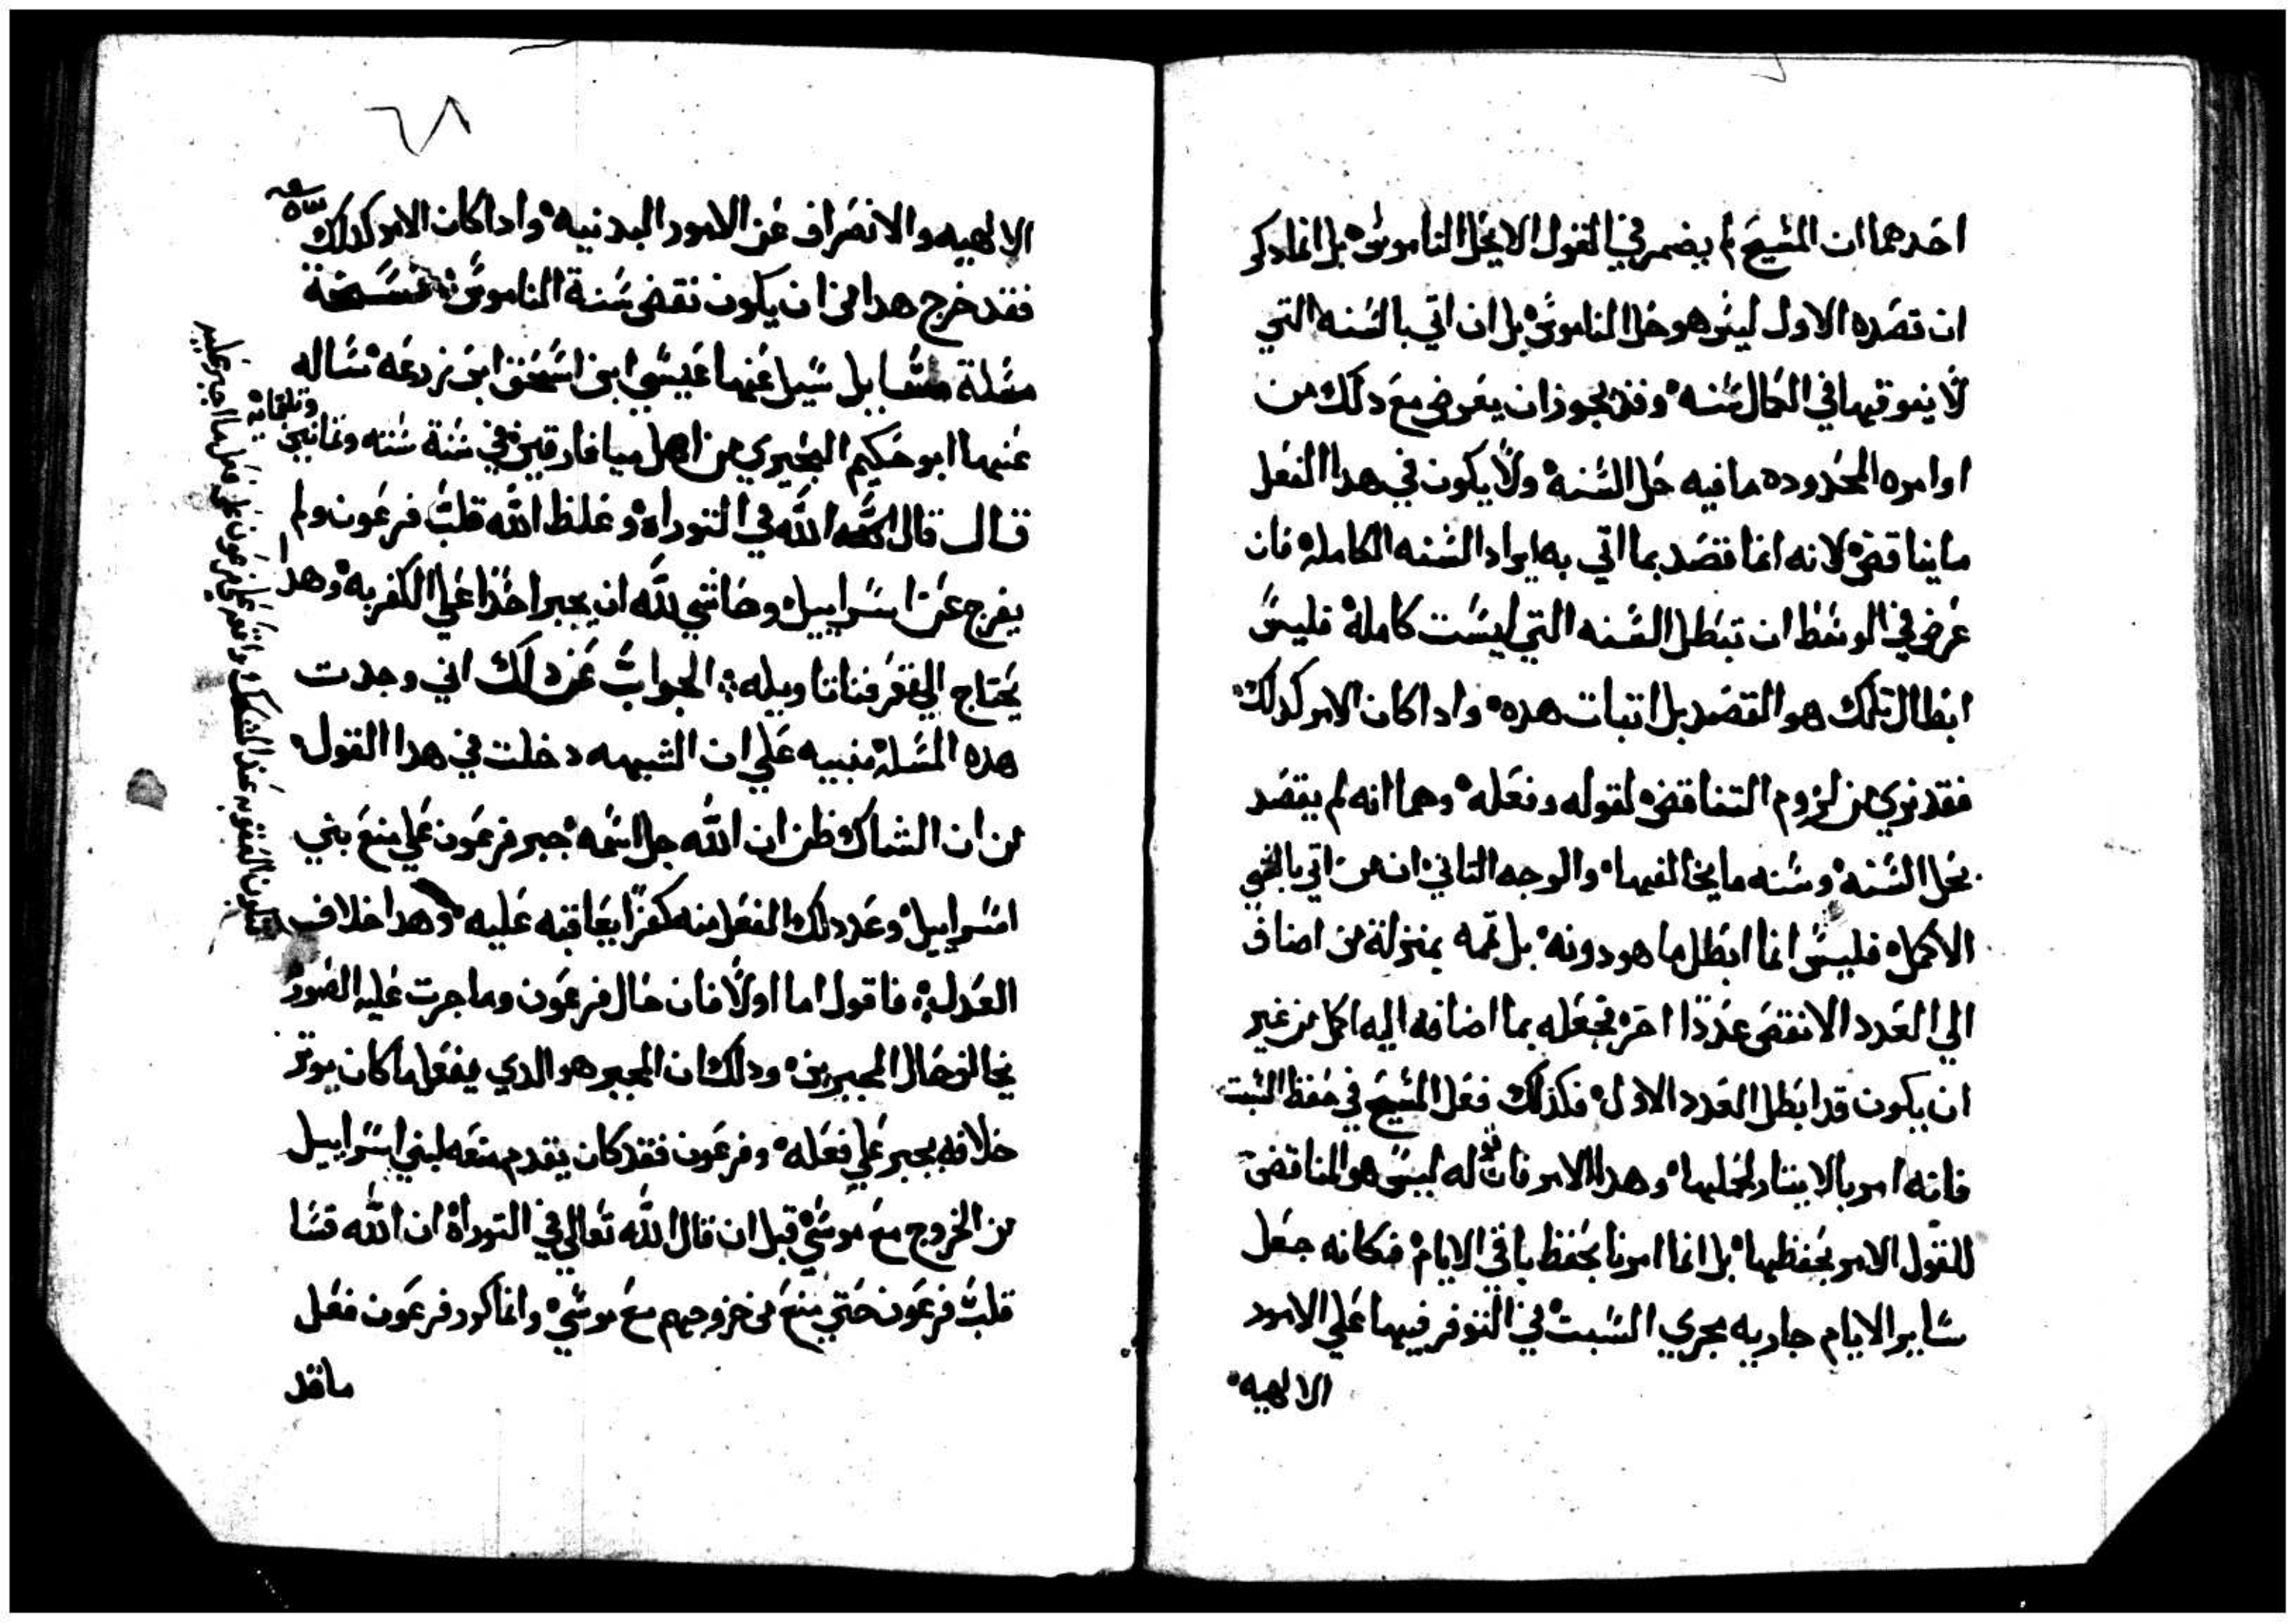 احدهما ان المسيح لم يضمر في القول الا يحل الناموس بل انما ذكر
ان قصده الاول ليس هو حل الناموس بل ان اتي بالسنه التي
لا يبوقيها في الكمال سنه وقد يجوز ان يعرض مع دلك من
اوامره المحدوده ما فيه حل السنه ولا يكون في هدا الفعل
ما يناقض لانه انما قصد بما اتي به ايراد السنه الكامله فان
عرض في الوسط ان تبطل السنه التي ليست كاملة فليس
ابطال تلك هو القصد بل اتبات هده وادا كان الامر كدلك
فقد بري من لزوم التناقض لقوله وفعله وهما انه لم يقصد
بحل السنه وسنه ما يخالفها والوجه التاني ان من اتي بالخير
الاكمل فليس انما ابطل ما هو دونه بل تممه بمنزلة من اضاف
الي العدد الانقص عددا اخر فجعله بما اضافه اليه اكمل من غير
ان يكون قد ابطل العدد الاول فكذلك فعل المسيح في حفظ السبت
فانه امر بالا يبتاد لحليها وهدا الامر فان له ليس هو المناقض
للقول الامر بحفظها بل انما امرنا بحفظ باقي الايام فكانه جعل
ساير الايام جاريه مجري السبت في التوفر فيها علي الامور
الالهيه
الالهيه والانصراف عن الامور البدنيه وادا كان الامر كدلك
فقد خرج هدا من ان يكون نقض سنة الناموس
مسلة سيل عنها عيسي ابن اسحق ابن زرعه ساله
عنها ابو حكيم البحيري من اهل ميافارقين في سنة سته وتمانين وتلتمايه
قال قال الله في التوراه وغلظ الله قلب فرعون ولم
يفرج عن اسراييل وحاشي لله ان يجبر احدا علي الكفر به وهدا
يحتاج الي تعرفنا تاويله الجواب عن دلك اني وجدت
هده المسله منبيه علي ان الشبهه دخلت في هدا القول
من ان الشاك ظن ان الله جل اسمه جبر فرعون علي منع بني
اسراييل وعد دلك الفعل منه كفرا يعاقبه عليه وهدا خلاف
العدل فاقول اما اولا فان حال فرعون وما جرت عليه الصور
يخالف حال المجبرين ودلك ان المجبر هو الدي يفعل ما كان يوتر
خلافه بجبر علي فعله وفرعون فقد كان يقدم منعه لبني اسراييل
من الخروج مع موسي قبل ان قال الله تعالي في التوراة ان الله قسا
قلب فرعون حتي منع من خروجهم مع موسي وانما كرر فرعون فعل
ما قد